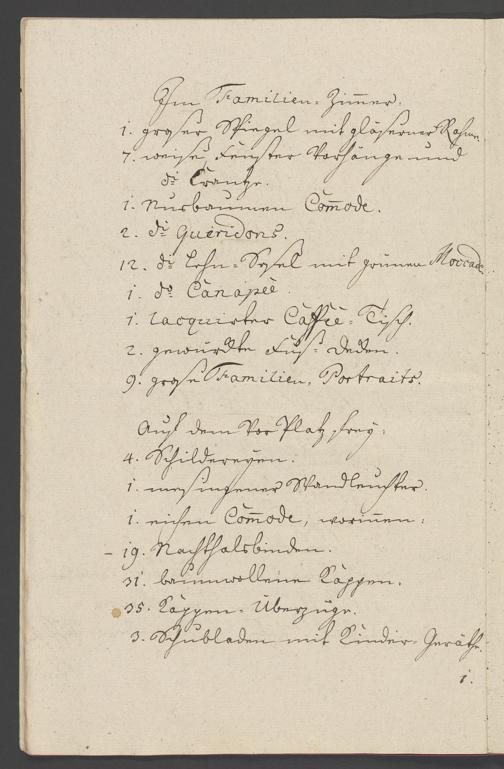 Im Familien-Zimmer.
1. groser Spiegel mit gläserner Rahme.
7. weise Fenster Vorhänge und
do. Cräntze.
1. Nusbaumen Com̄ode.
2. do. Gueridons.
12. do. Lehn-Sesel mit grünen Moccade.
1. do. Canapée.
1. lacquirter Caffée-Tisch.
2. gewürckte Fus-Decken.
9. grose Familien-Portraits.
Auf dem Vor Platz,
4. Schildereyen.
1. mesingener Wandleuchter.
1. eichen Com̄ode, worinnen:
- 19. Nachthalsbinden.
31. baumwollene Kappen.
35. Kappen-Überzüge.
3. Schubladen mit Kinder-Geräth.
1.